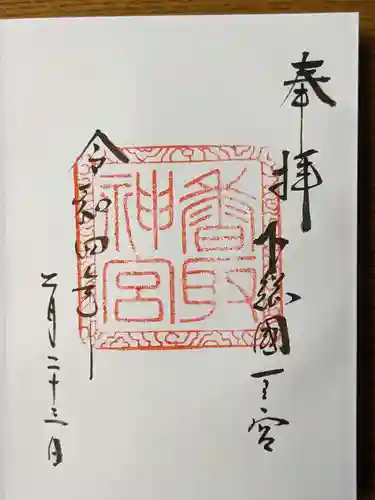 奉拝
下総國一之宮
香取神宮
令和四年
二月二十三日